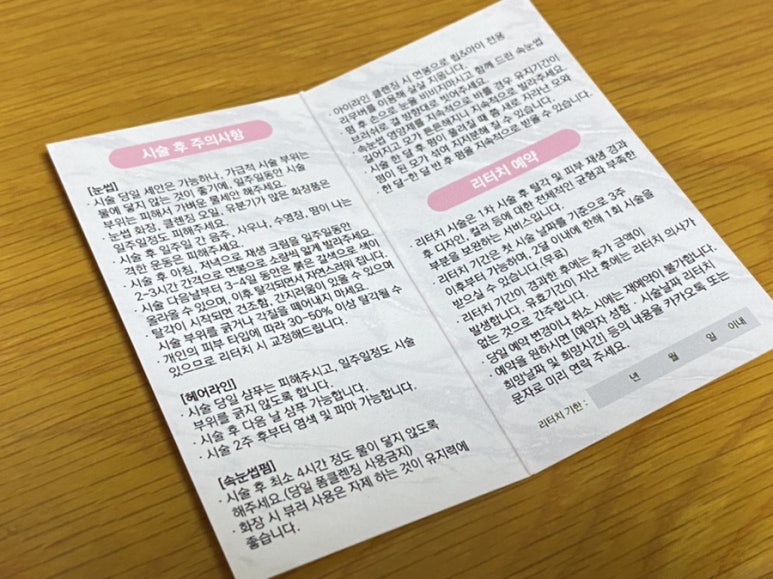 시술 후 주의사항
[눈썹]
· 시술 당일 세안은 가능하나, 가급적 시술 부위는
물에 닿지 않는 것이 좋기에, 일주일동안 시술
부위는 피해서 가벼운 물세안 해주세요.
· 눈썹 화장, 클렌징 오일, 유분기가 많은 화장품은
일주일정도 피해주세요.
· 시술 후 일주일 간 음주, 사우나, 수영장, 땀이 나는
격한 운동은 피해주세요.
· 시술 후 아침, 저녁으로 재생 크림을 일주일동안
2-3시간 간격으로 면봉으로 소량씩 얇게 발라주세요.
· 시술 다음날부터 3-4일 동안은 붉은 갈색으로 색이
올라올 수 있으며, 이후 탈각되면서 자연스러워 집니다.
· 탈각이 시작되면 건조함, 간지러움이 있을 수 있으며
시술 부위를 긁거나 각질을 떼어내지 마세요.
· 개인의 피부 타입에 따라 30-50% 이상 탈각될 수
있으므로 리터치 시 교정해드립니다.
[헤어라인]
· 시술 당일 샴푸는 피해주시고, 일주일정도 시술
부위를 긁지 않도록 합니다.
· 시술 후 다음 날 샴푸 가능합니다.
· 시술 2주 후부터 염색 및 파마 가능합니다.
[속눈썹펌]
· 시술 후 최소 4시간 정도 물이 닿지 않도록
해주세요.(당일 폼클렌징 사용금지)
· 화장 시 뷰러 사용은 자제 하는 것이 유지력에
좋습니다.
· 아이라인 클렌징 시 면봉으로 립&아이 전용
리무버를 이용해 살살 지웁니다.
· 펌 후 손으로 눈을 비비지마시고 함께 드린 속눈썹
브러쉬로 결 방향대로 빗어주세요.
· 속눈썹 영양제를 지속적으로 바를 경우 유지기간이
길어지고 모가 튼튼해지니 지속적으로 발라주세요.
· 시술 한 달 후 펌이 풀려질 때 쯤 새로 자라난 모와
펌이 된 모가 섞여 지저분해 질 수 있습니다.
· 한 달-한 달 반 후 펌을 지속적으로 받을 수 있습니다.
리터치 예약
· 리터치 시술은 1차 시술 후 탈각 및 피부 재생 경과
후 디자인, 컬러 등에 대한 전체적인 균형과 부족한
부분을 보완하는 서비스입니다.
· 리터치 기간은 첫 시술 날짜를 기준으로 3주
이후부터 가능하며, 2달 이내에 한해 1회 시술을
받으실 수 있습니다.(유료)
· 리터치 기간이 경과한 후에는 추가 금액이
발생합니다. 유효기간이 지난 후에는 리터치 의사가
없는 것으로 간주합니다.
· 당일 예약 변경이나 취소 시에는 재예약이 불가합니다.
· 예약을 원하시면 (예약자 성함 · 시술날짜 리터치
희망날짜 및 희망시간) 등의 내용을 카카오톡 또는
문자로 미리 연락 주세요.
리터치 기한 : 년 월 일 이내